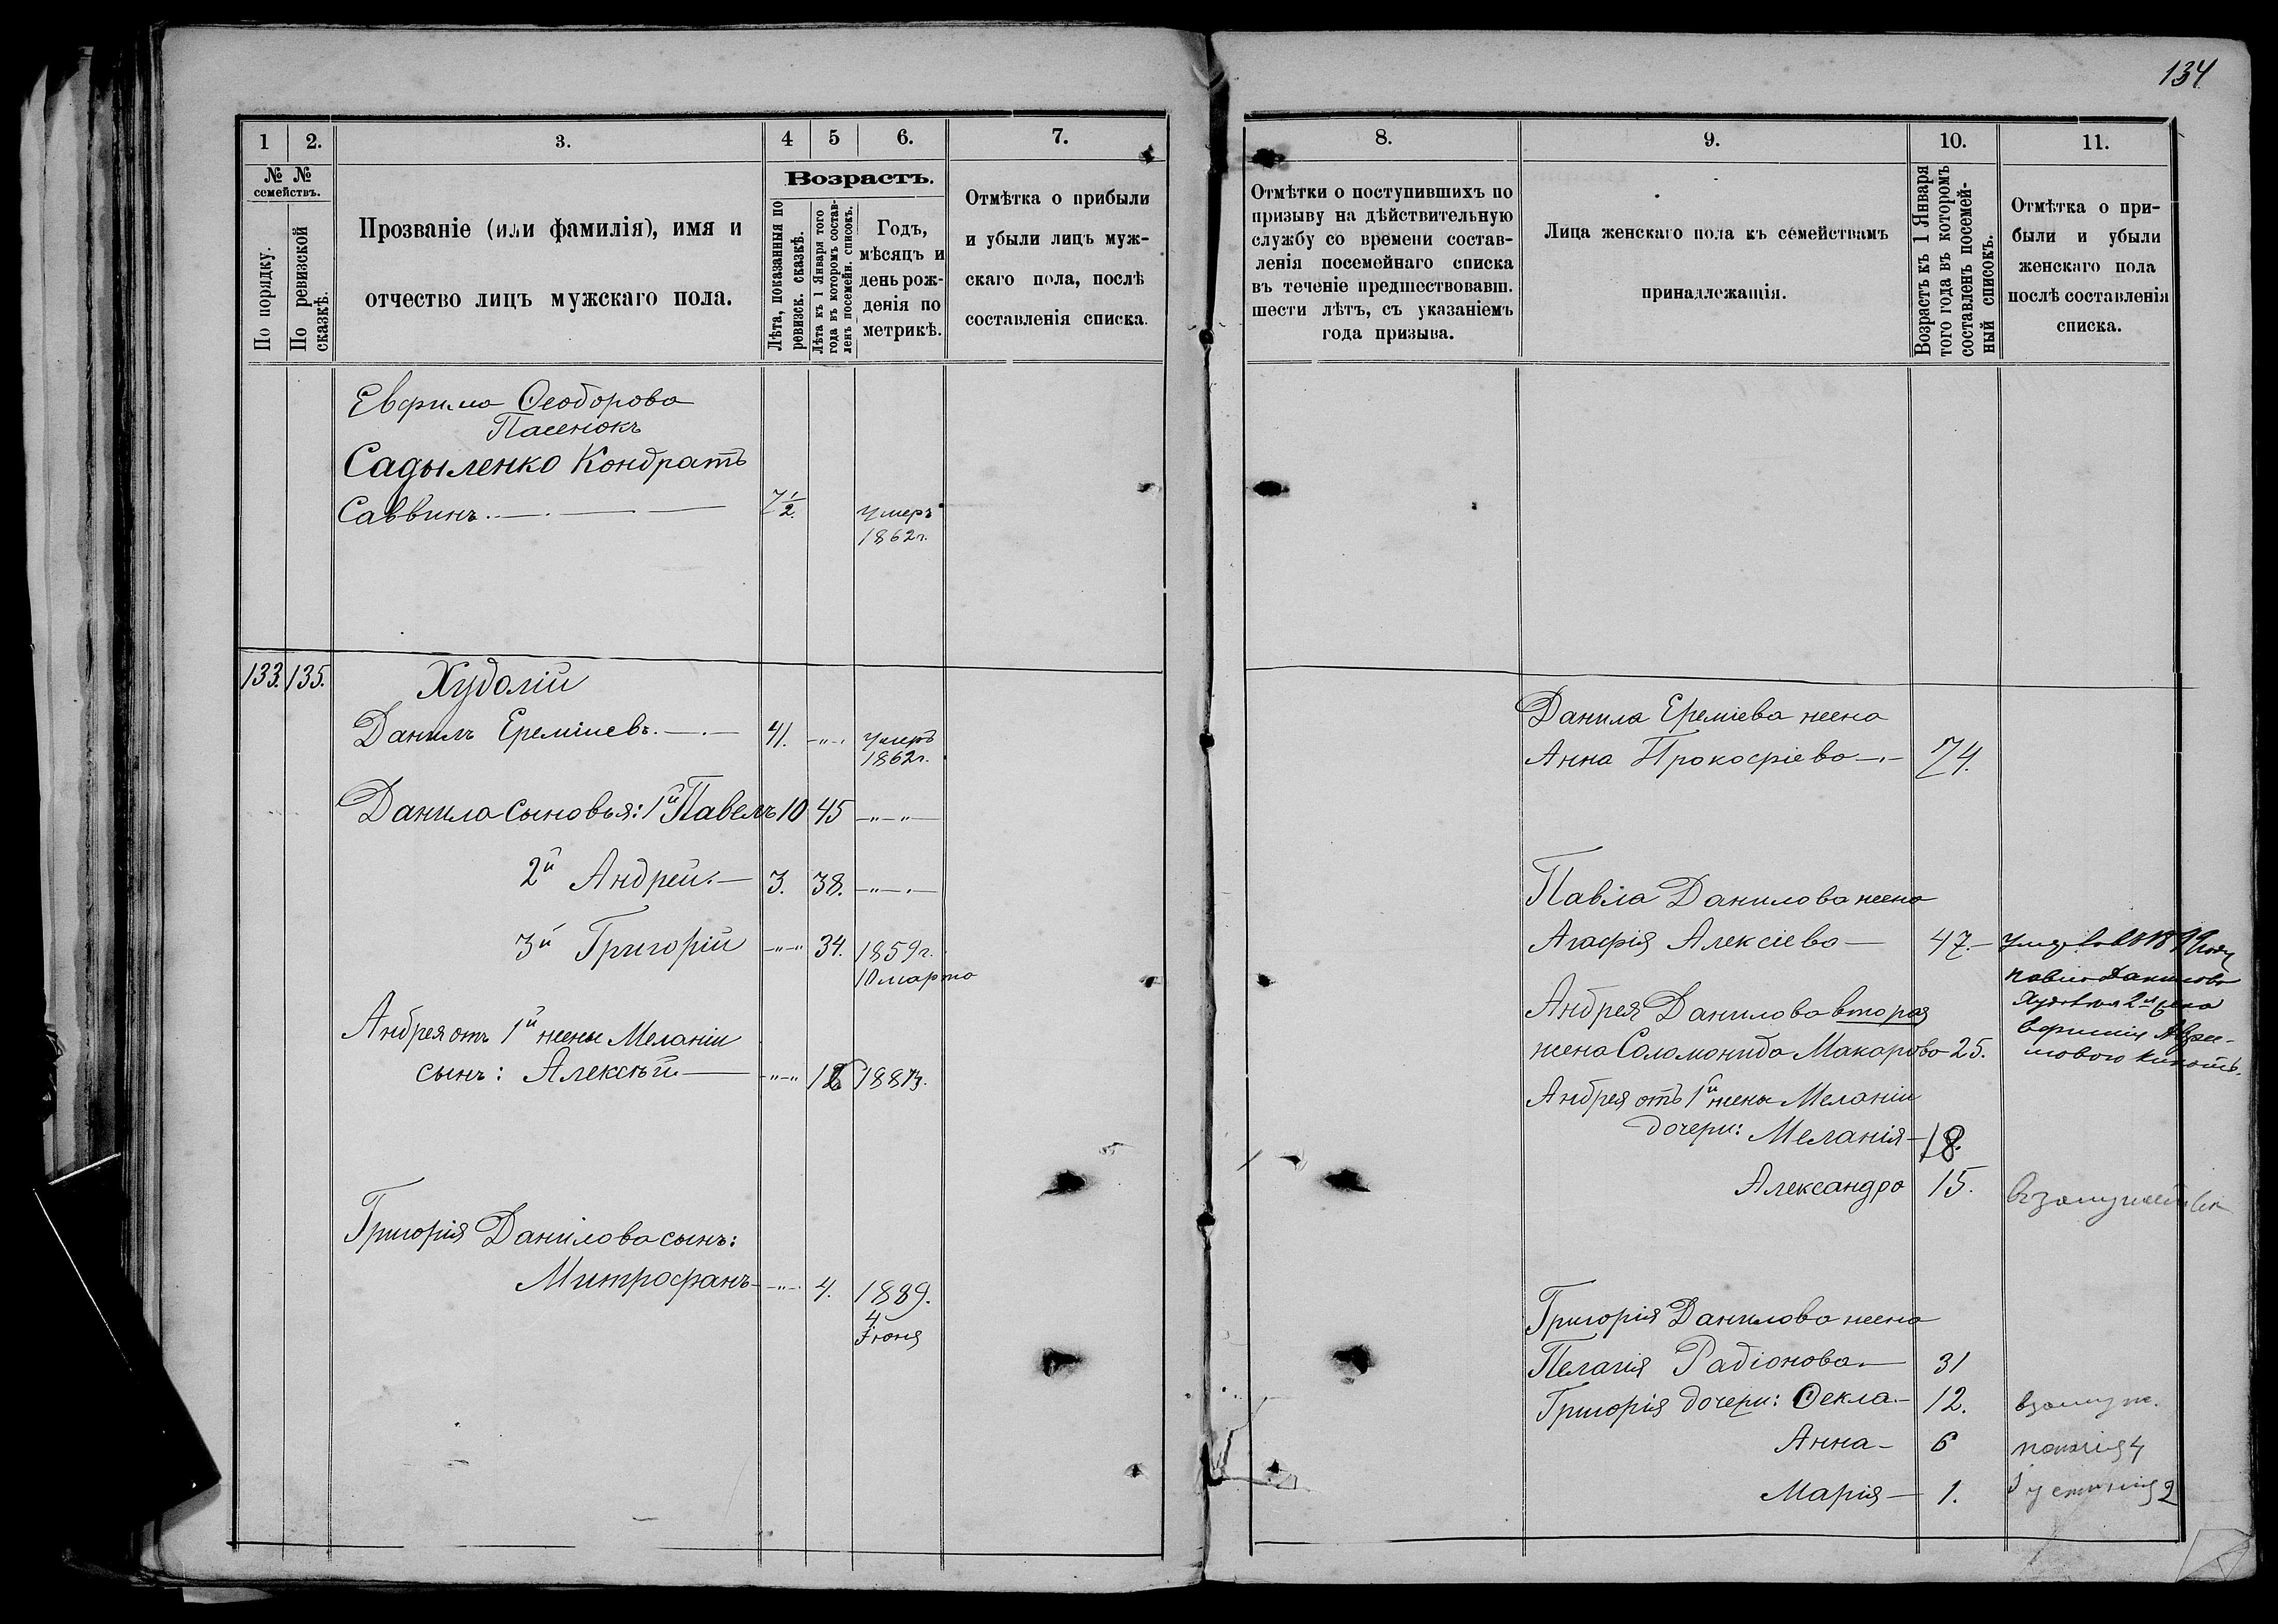 134
1
2.
3.
4
5
6.
7.
№ №
семействъ.
По порядку.
По ревизской
сказкѣ.
Прозваніе (или фамилія), имя и
отчество лицъ мужскаго пола.
Возрастъ.
Лѣта, показанныя по
ревизск. сказкѣ.
Лѣта къ 1 Января того
года въ которомъ состав-
ленъ посемейн. списокъ.
Годъ,
мѣсяцъ и
день рож-
денія по
метрикѣ.
Отмѣтка о прибыли
и убыли лицъ муж-
скаго пола, послѣ
составленія списка.
Евфима Ѳеодорова
Пасенокъ
Садыленко Кондратъ
Саввинъ. 7 1/2. умеръ
1862г.
133. 135. Худолій
Данилъ Ереміиевъ. 41. умеръ
1862г.
Данила сыновья: 1й Павелъ 10 45
2й Андрей. 3. 38.
3й Григорій 34. 1859г.
10 марта
Андрея отъ 1й жены Меланіи
сынъ: Алексѣй
Григорія Данилова сынъ:
Митрофанъ 4. 1889.
4
Іюня
8.
9.
10.
11.
Отмѣтки о поступившихъ по
призыву на дѣйствительную
службу со времени состав-
ленія посемейнаго списка
въ теченіе предшествовавш.
шести лѣтъ, съ указаніемъ
года призыва.
Лица женскаго пола къ семействамъ
принадлежащія.
Возрастъ къ 1 Января
того года въ которомъ
составленъ посемей-
ный списокъ.
Отмѣтка о при-
были и убыли
женскаго пола
послѣ составленія
списка.
Данила Ереміева жена
Анна Прокофіева 74.
Павла Данилова жена
Агафія Алексіева 47.
Павла Данилова
Андрея Данилова вторая
жена Соломонида Макарова 25.
Андрея отъ 1й жены Меланіи
дочери: Меланія 18.
Александра 15.
Григорія Данилова жена
Пелагія Радіонова 31
Григорія дочери: Ѳекла 12. взамуж.
Анна 6
Марія 1. Іустинія 2